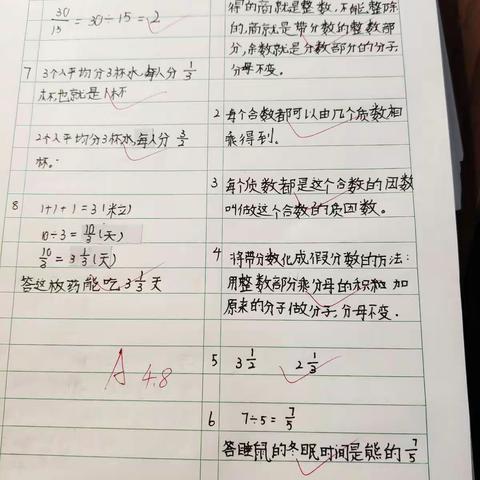 30/15 = 30÷15 = 2
7 3个人平均分3杯水,每人分 1/3
杯也就是1杯
2个人平均分3杯水,每人分 3/2
杯。
8 1+1+1=3(粒)
10÷3=10/3(天)
10/3=3 1/3(天)
答这板药能吃3 1/3天
A 4.8
得的商就是整数,不能整除
的,商就是带分数的整数部
分,余数就是分数部分的分子
分母不变。
2 每个合数都可以由几个质数相
乘得到。
3 每个质数都是这个合数的因数
叫做这个合数的质因数。
4 将带分数化成假分数的方法:
用整数部分乘分母的积 加
原来的分子做分子,分母不变.
5 3 1/2 2 1/3
6 7÷5=7/5
答睡鼠的冬眠时间是熊的7/5